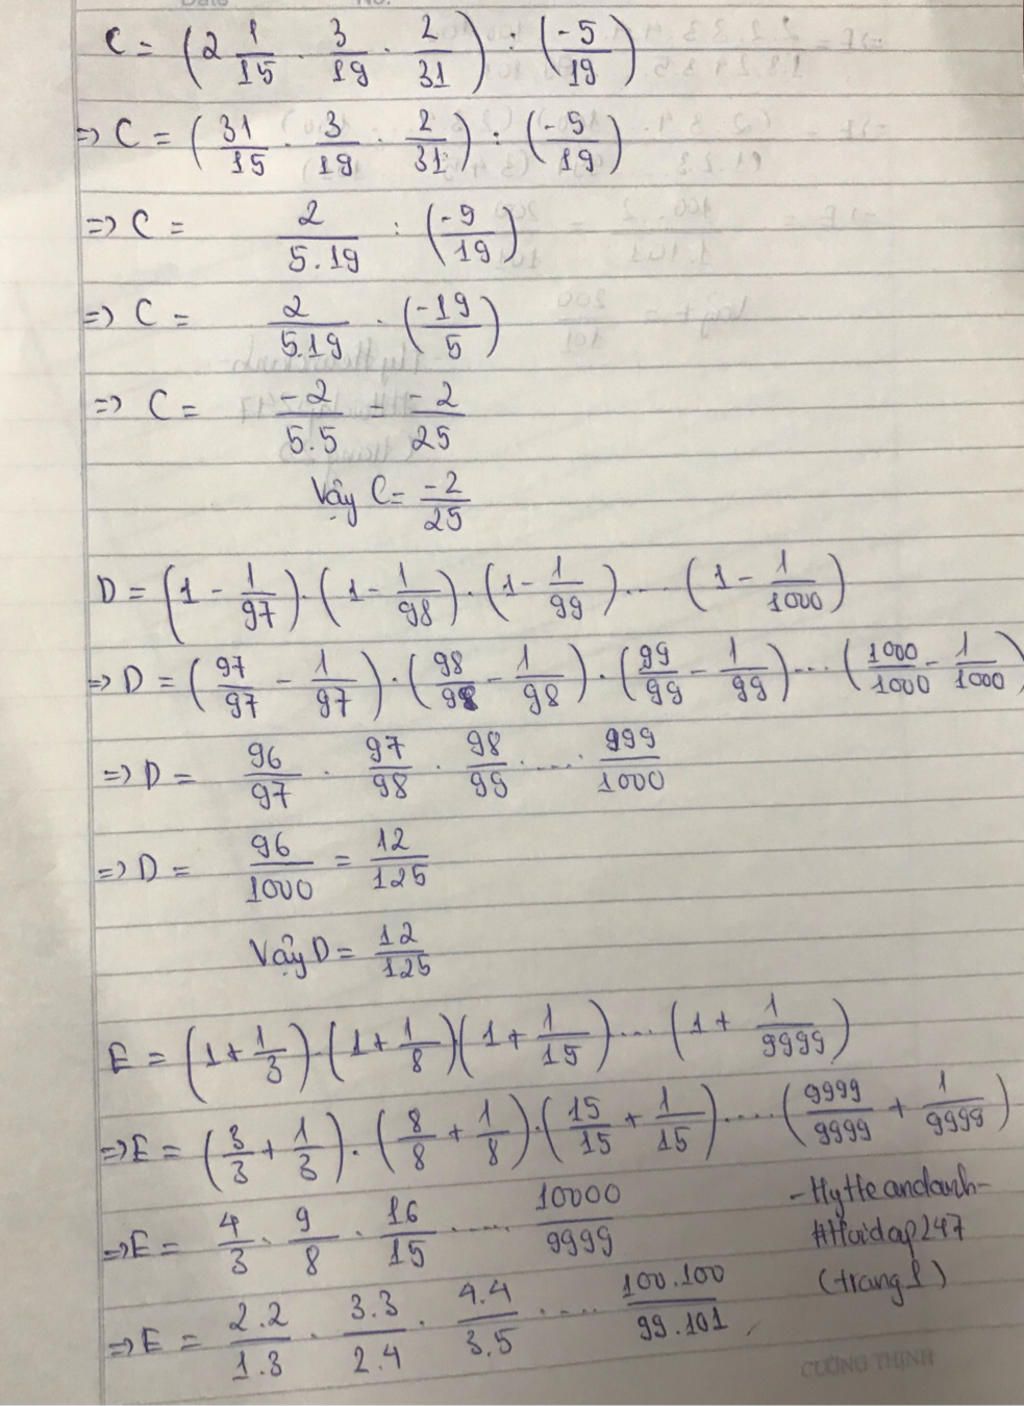 C = (2 1/15 . 3/19 . 2/31) : (-5/19)
=> C = (31/15 . 3/19 . 2/31) : (-5/19)
=> C = 2/5.19 : (-9/19)
=> C = 2/5.19 . (-19/5)
=> C = -2/5.5 = -2/25
Vậy C = -2/25
D = (1 - 1/97) . (1 - 1/98) . (1 - 1/99) .... (1 - 1/1000)
=> D = (97/97 - 1/97) . (98/98 - 1/98) . (99/99 - 1/99) .... (1000/1000 - 1/1000)
=> D = 96/97 . 97/98 . 98/99 ..... 999/1000
=> D = 96/1000 = 12/125
Vậy D = 12/125
E = (1 + 1/3) . (1 + 1/8) (1 + 1/15) .... (1 + 1/9999)
=> E = (3/3 + 1/3) . (8/8 + 1/8) . (15/15 + 1/15) ..... (9999/9999 + 1/9999)
=> E = 4/3 . 9/8 . 16/15 ..... 10000/9999
-HyHeandanh-
#Hoidap247
(trang 1)
=> E = 2.2/1.3 . 3.3/2.4 . 4.4/3.5 ..... 100.100/99.101
CƯỜNG THỊNH